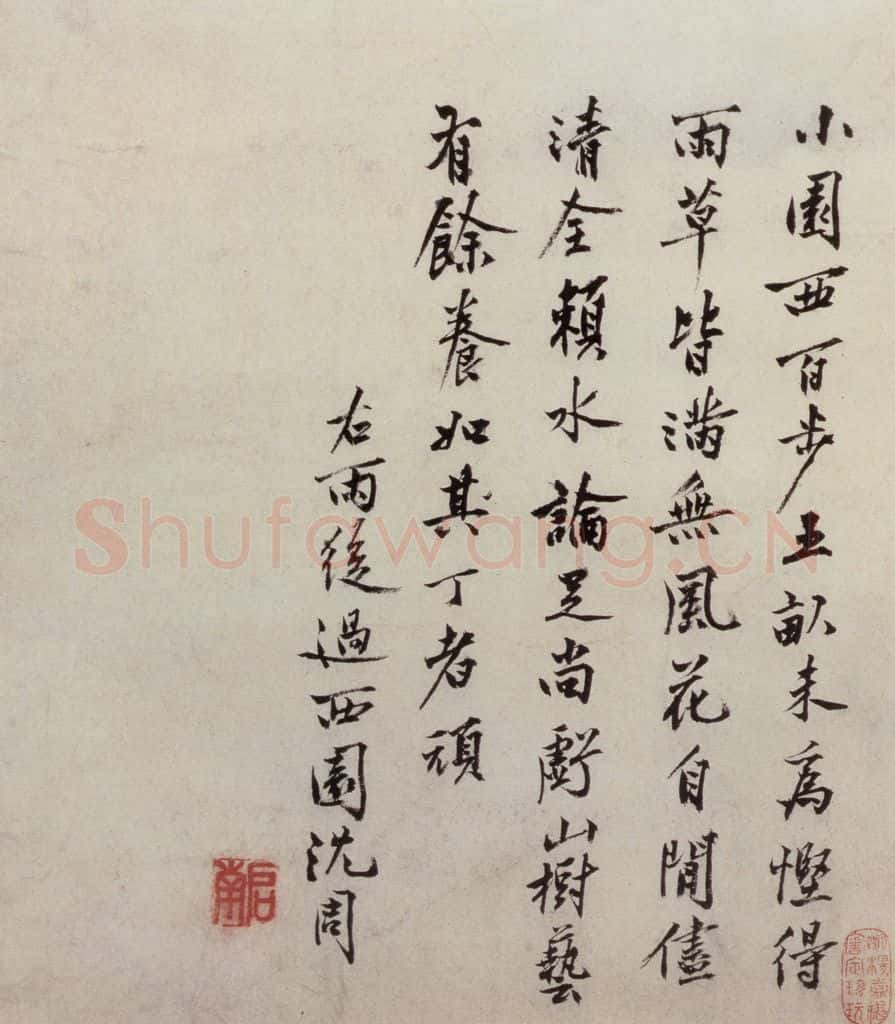 小園西百步五畝未為慳得
雨草皆滿無風花自閒儘
清全賴水論足尚虧山樹藝
有餘養如其丁者頑
右雨後過西園沈周
启南
Shufawang.CN